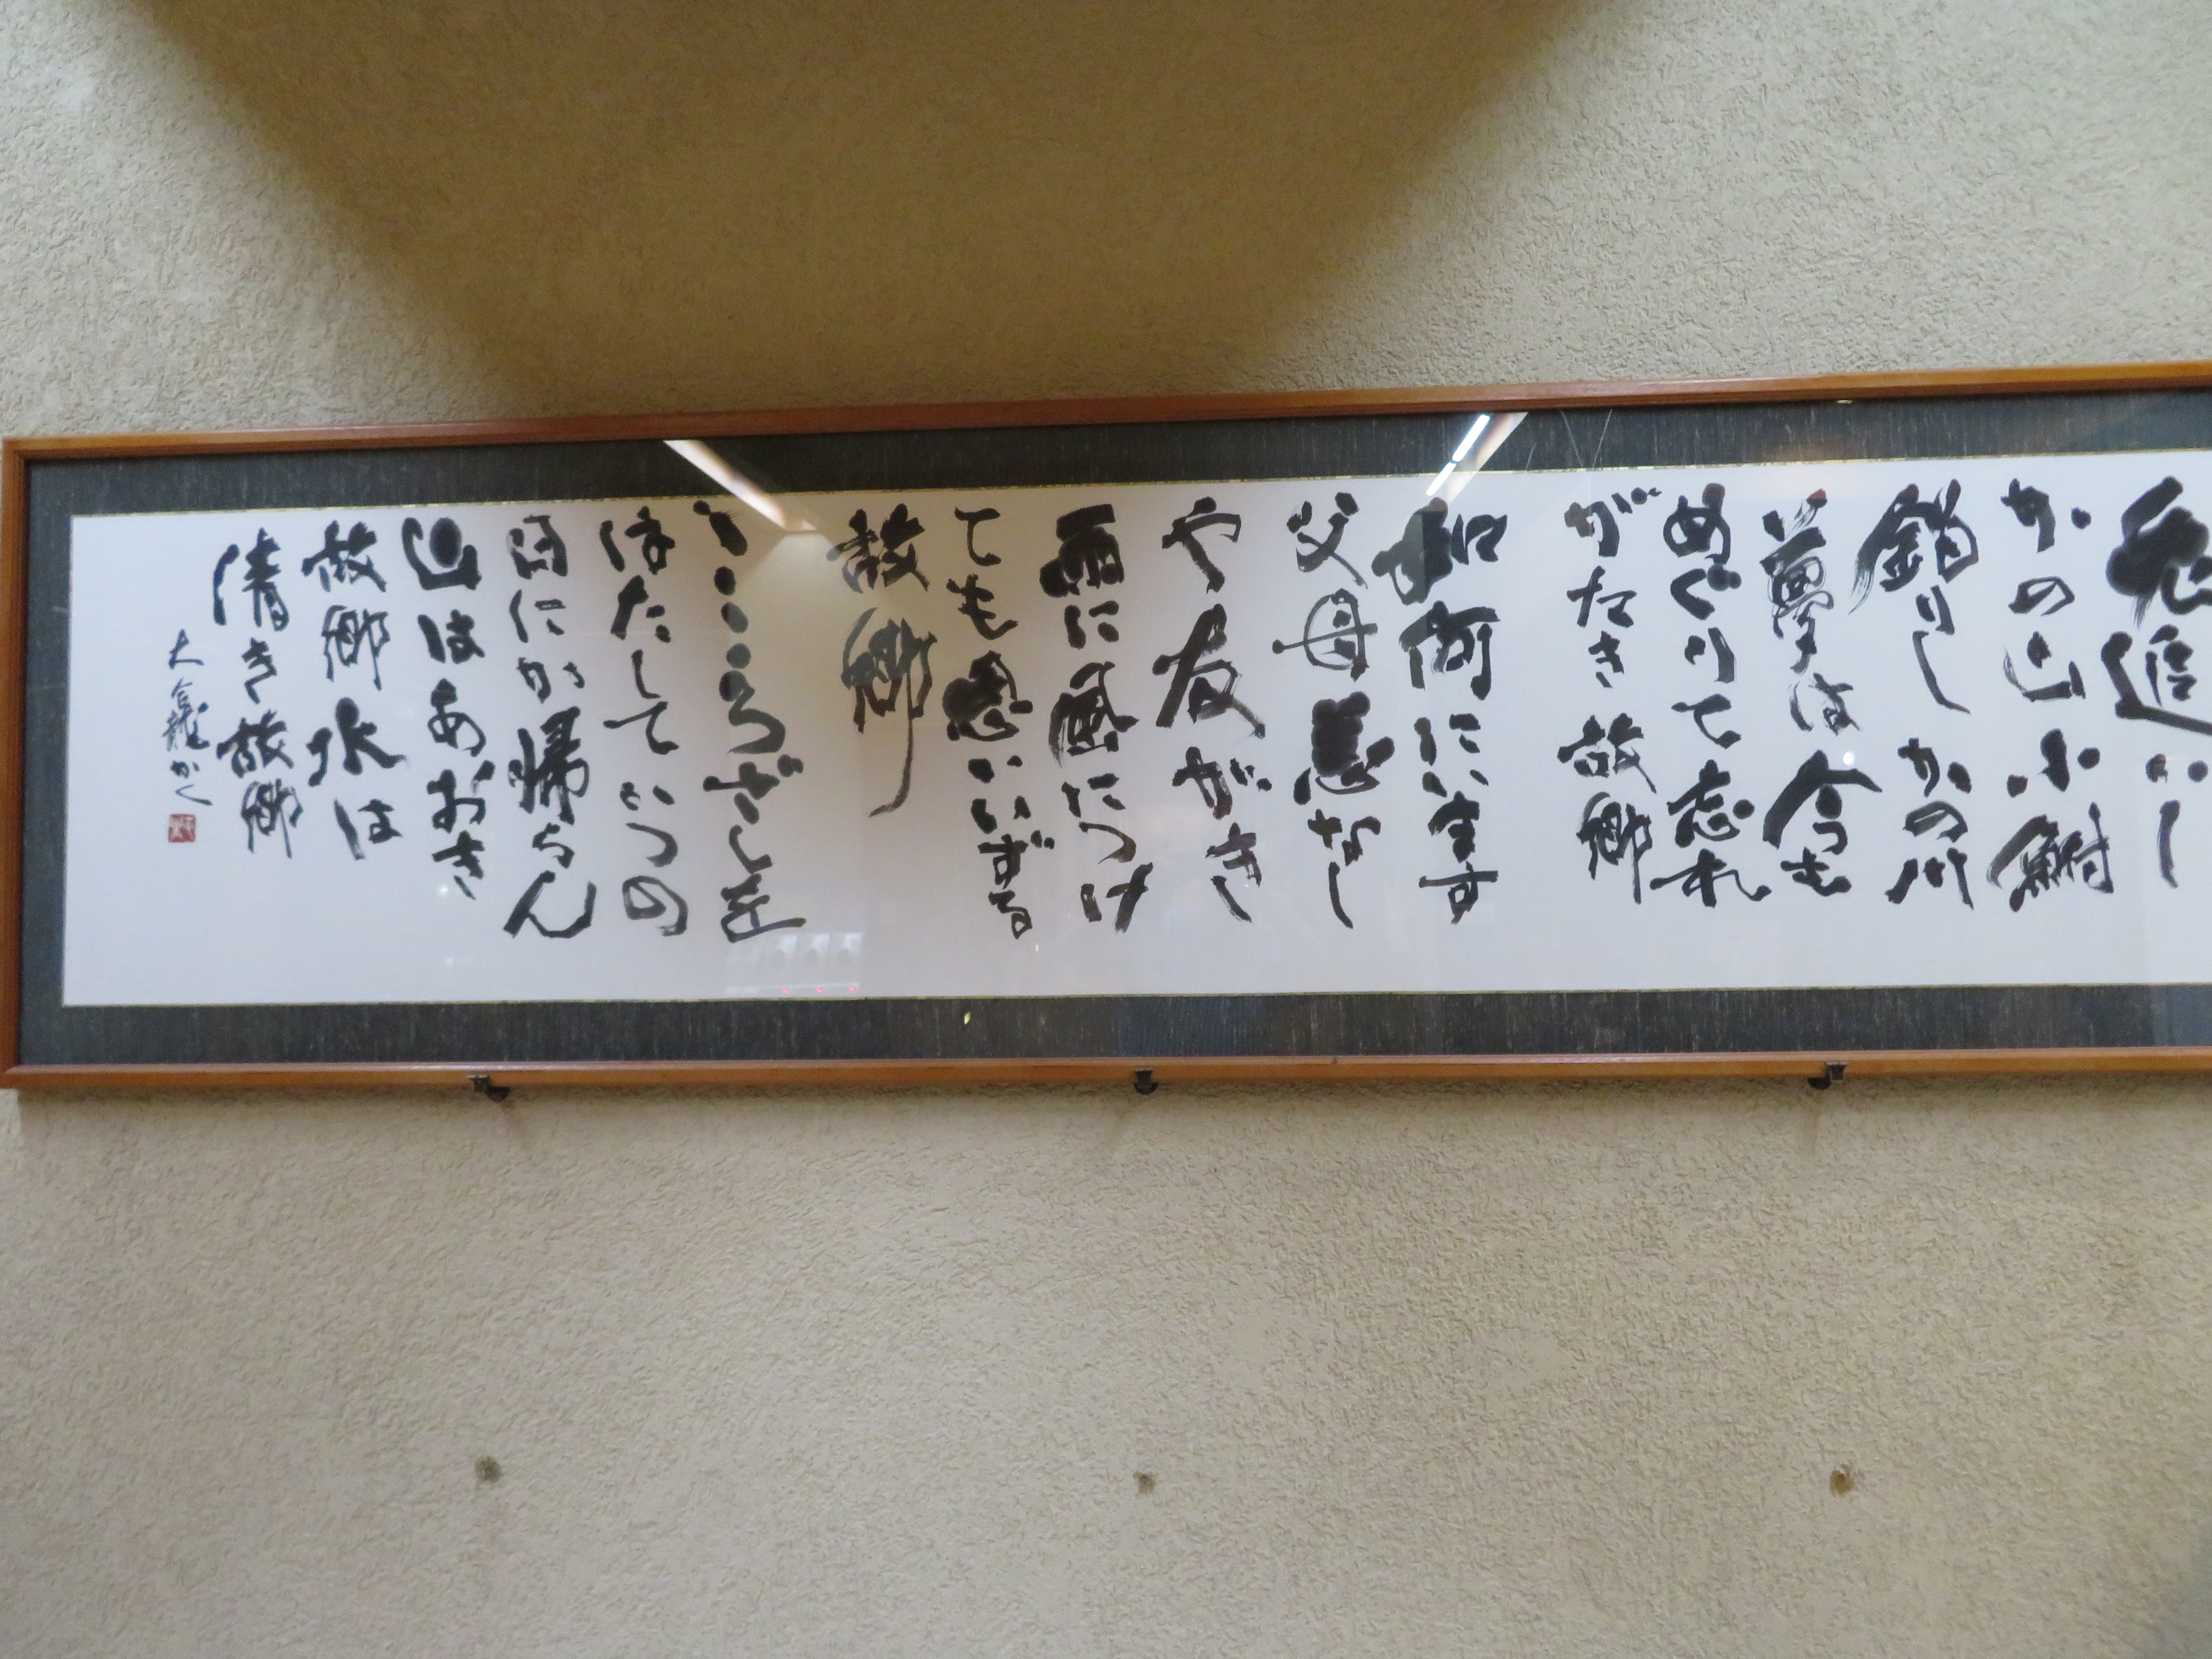 兎追いし
かの山小鮒
釣りしかの川
夢は今も
めぐりて忘れ
がたき故郷
如何にいます
父母恙なし
や友がき
雨に風につけ
ても思いいずる
故郷
こころざしを
はたしていつの
日にか帰らん
山はあおき
故郷水は
清き故郷